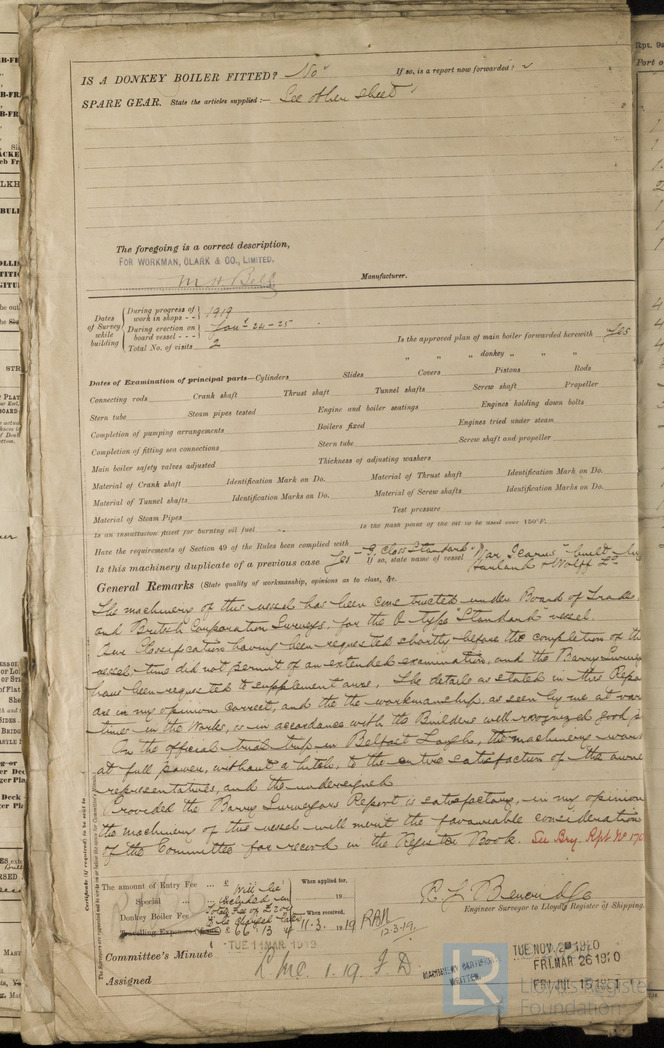 IS A DONKEY BOILER FITTED? No If so, is a report now forwarded?
SPARE GEAR. State the articles supplied:— See other sheet
The foregoing is a correct description,
FOR WORKMAN, CLARK & CO., LIMITED.
Manufacturer.
Dates of Survey while building
During progress of work in shops - - 1919
During erection on board vessel - - - Jany 24-25
Total No. of visits 2
Is the approved plan of main boiler forwarded herewith Yes
" " " donkey " " "
Dates of Examination of principal parts—Cylinders Slides Covers Pistons Rods
Connecting rods Crank shaft Thrust shaft Tunnel shafts Screw shaft Propeller
Stern tube Steam pipes tested Engine and boiler seatings Engines holding down bolts
Completion of pumping arrangements Boilers fixed Engines tried under steam
Completion of fitting sea connections Stern tube Screw shaft and propeller
Main boiler safety valves adjusted Thickness of adjusting washers
Material of Crank shaft Identification Mark on Do. Material of Thrust shaft Identification Mark on Do.
Material of Tunnel shafts Identification Marks on Do. Material of Screw shafts Identification Marks on Do.
Material of Steam Pipes Test pressure
Is an installation fitted for burning oil fuel Is the flash point of the oil to be used over 150°F.
Have the requirements of Section 49 of the Rules been complied with
Is this machinery duplicate of a previous case Yes If so, state name of vessel "War Icarus" built by
Harland & Wolff Ld
General Remarks (State quality of workmanship, opinions as to class, &c.
The machinery of this vessel has been constructed under Board of Trade
and British Corporation Surveys, for the G type "Standard" vessel.
Our Classification having been requested shortly before the completion of the
vessel, time did not permit of an extended examination, and the Barry Surveyors
have been requested to supplement ours. The details as stated in this Report
are in my opinion correct, and the workmanship, as seen by me at various
times in the Works, is in accordance with the Builders well recognized good
On the official trial trip in Belfast Lough, the machinery was
at full power, without a hitch, to the entire satisfaction of the owners
representatives, and the undersigned.
Provided the Barry Surveyors Report is satisfactory, in my opinion
the machinery of this vessel will merit the favourable consideration
of the Committee for record in the Register Book. See Bry. Rpt No
The amount of Entry Fee ... £ When applied for,
Special ... included in 19
Donkey Boiler Fee When received,
Travelling Expenses £ 66.13.4 11.3.1919
12.3.19.
Engineer Surveyor to Lloyd's Register of Shipping.
Committee's Minute TUE 11 MAR 1919
Assigned L.M.C. 1.19. F.D.
MACHINERY CERTIFICATE WRITTEN.
TUE. NOV. 2 1920
FRI. MAR 26 1920
FRI. JUL 15 1921
LR
Lloyd's Register
Foundation
Rpt. 9a
Port of